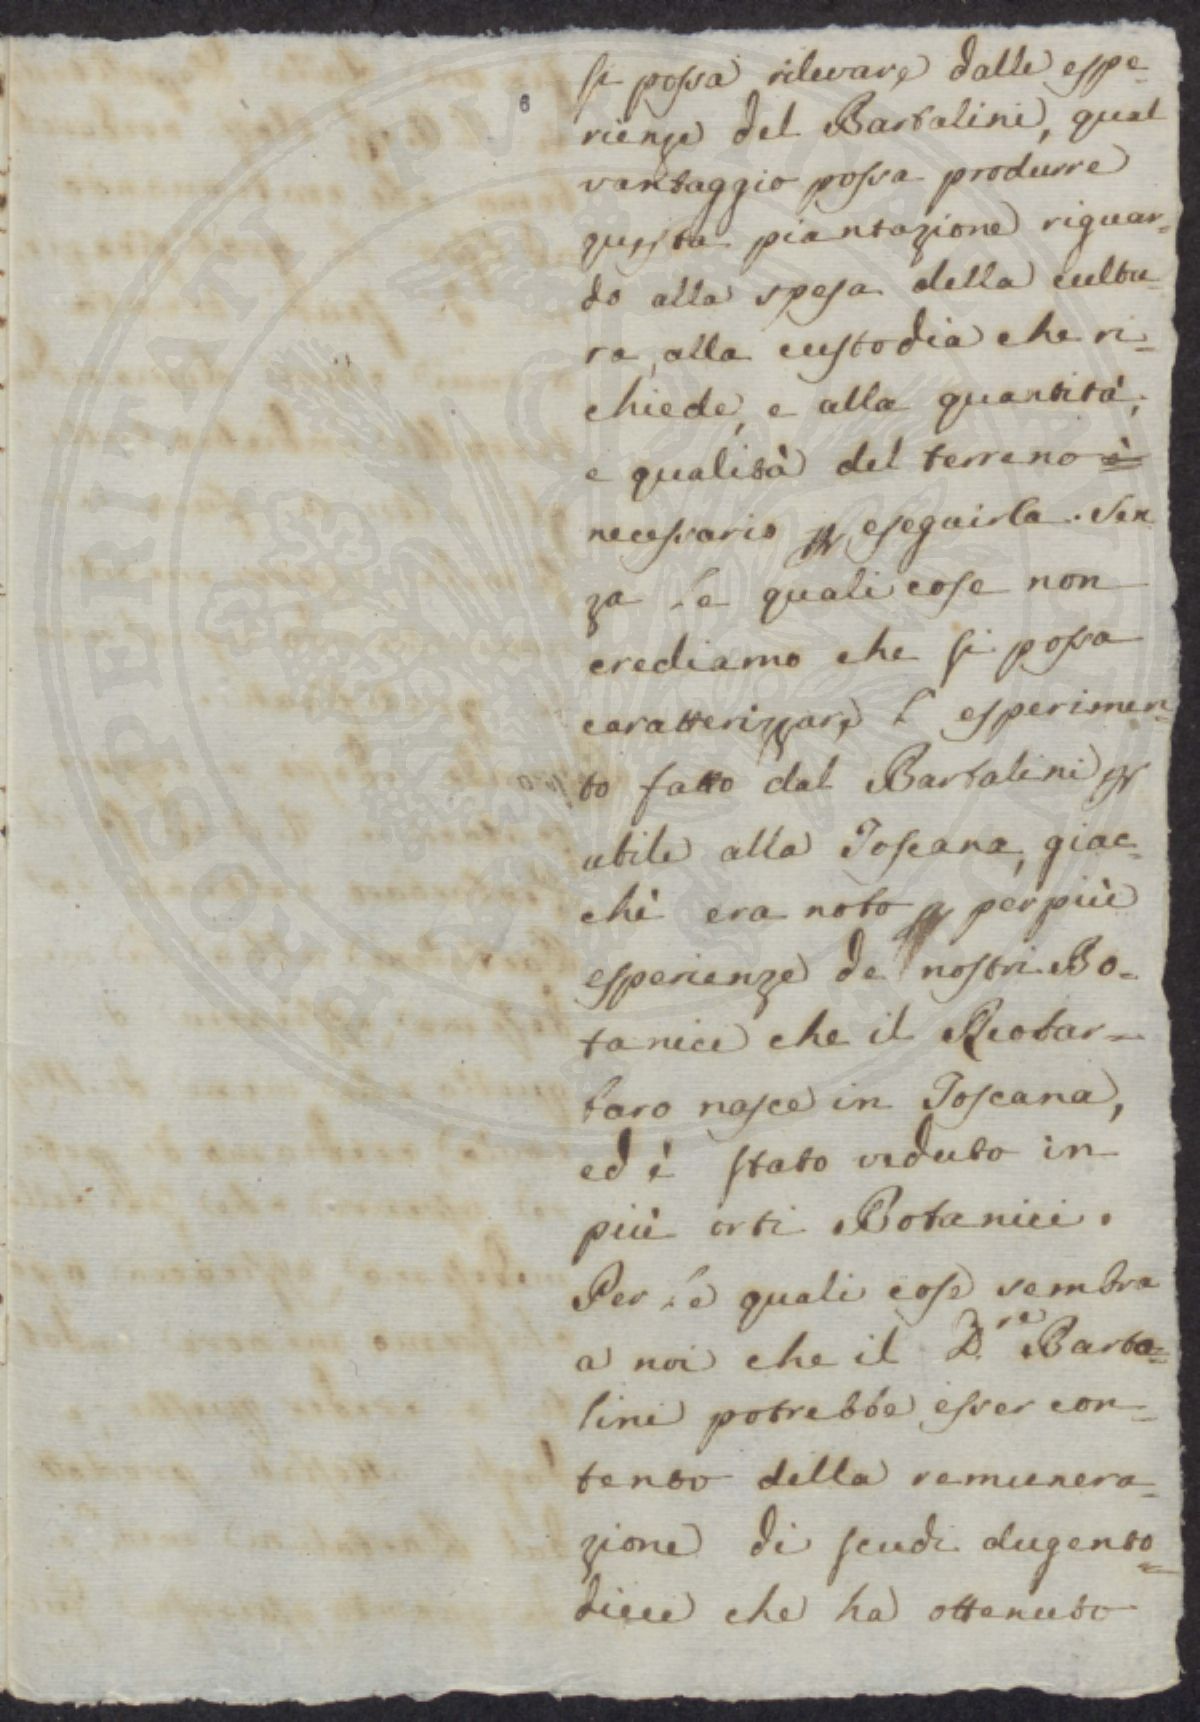 6
si possa rilevare dalle espe-
rienze del Bartalini, qual
vantaggio possa produrre
questa piantazione riguar=
do alla spesa della cultu-
ra, alla custodia che ri=
chiede, e alla quantità,
e qualità del terreno è
necessario p eseguirla. Sen
za le quali cose non
crediamo che si possa
caratterizzare l' esperimen=
to fatto dal Bartalini p
utile alla Toscana, giac-
chè era noto p per più
esperienze de nostri Bo-
tanici che il Reobar=
baro nasce in Toscana,
ed è stato veduto in
più orti Botanici.
Per le quali cose sembra
a noi che il D.re Barta=
lini potrebbe esser con=
tento della remunera=
zione di scudi dugento=
dieci che ha ottenuto
PROSPERITATI